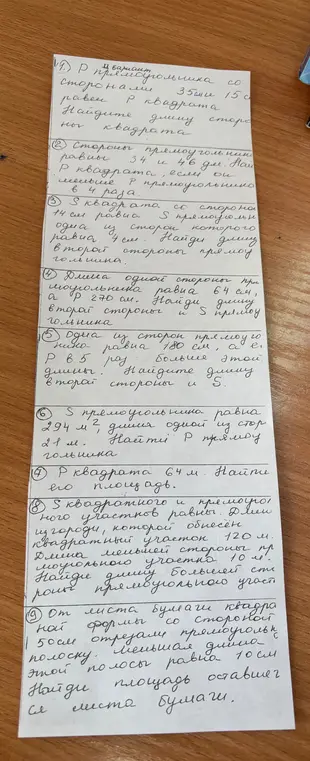 II вариант
① P прямоугольника со
сторонами 35 и 15 с
равен P квадрата
Найдите длину сторо
ны квадрата
② Стороны прямоугольни
равны 34 и 46 дм. Най
P квадрата, если он
меньше P прямоугольника
в 4 раза
③ S квадрата со стороно
14 см равна S прямоугольн
одна из сторон которого
равна 4 см. Найди длину
второй стороны прямоу
гольника.
④ Длина одной стороны пр
моугольника равна 64 см,
а P 270 см. Найди длину
второй стороны и S прямоу
гольника
⑤ Одна из сторон прямоуго
ника равна 180 см, а е
P в 5 раз больше этой
длины. Найдите длину
второй стороны и S.
⑥ S прямоугольника равна
294 м², длина одной из стор
21 м. Найти P прямоу
гольника
⑦ P квадрата 64 м. Найти
его площадь.
⑧ S квадратного и прямоугол
ного участков равны. Длин
изгороди, которой обнесён
квадратный участок 120 м.
Длина меньшей стороны пр
моугольного участка 10 м.
Найди длину большей сто
роны прямоугольного участ
⑨ От листа бумаги квадра
ной формы со стороной
50 см отрезали прямоугольн
полоску. Меньшая длина с
этой полосы равна 10 см
Найди площадь оставшег
ся листа бумаги.